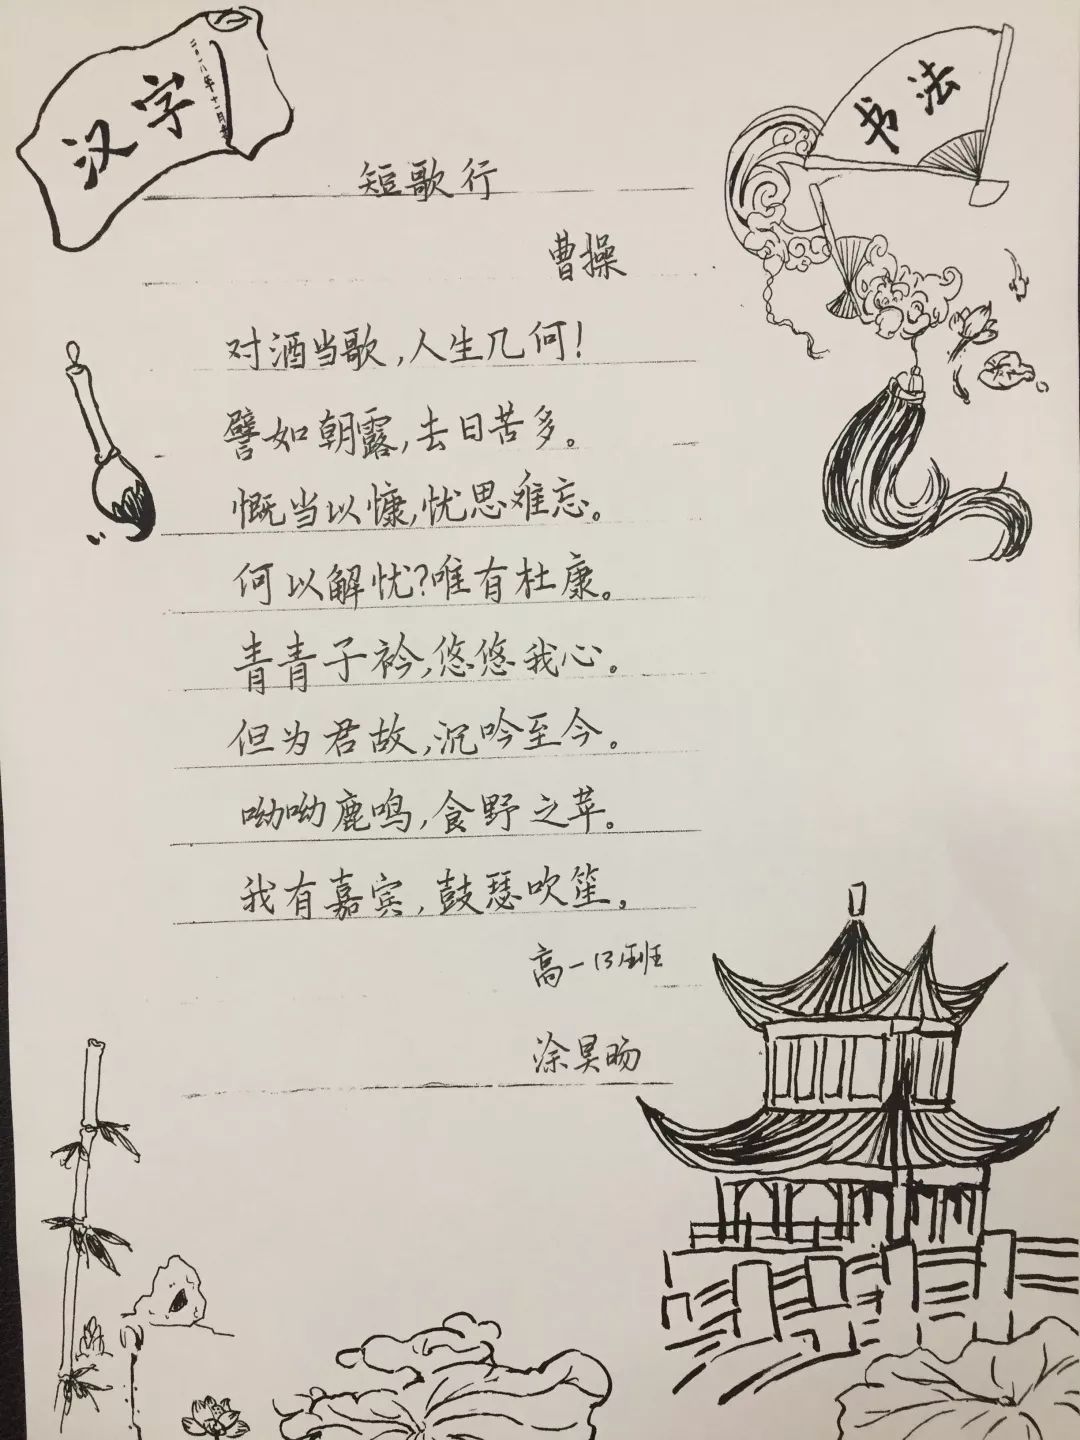 汉字
二〇一八年十一月
书法
短歌行
曹操
对酒当歌,人生几何!
譬如朝露,去日苦多。
慨当以慷,忧思难忘。
何以解忧?唯有杜康。
青青子衿,悠悠我心。
但为君故,沉吟至今。
呦呦鹿鸣,食野之苹。
我有嘉宾,鼓瑟吹笙。
高一13班
涂昊旸